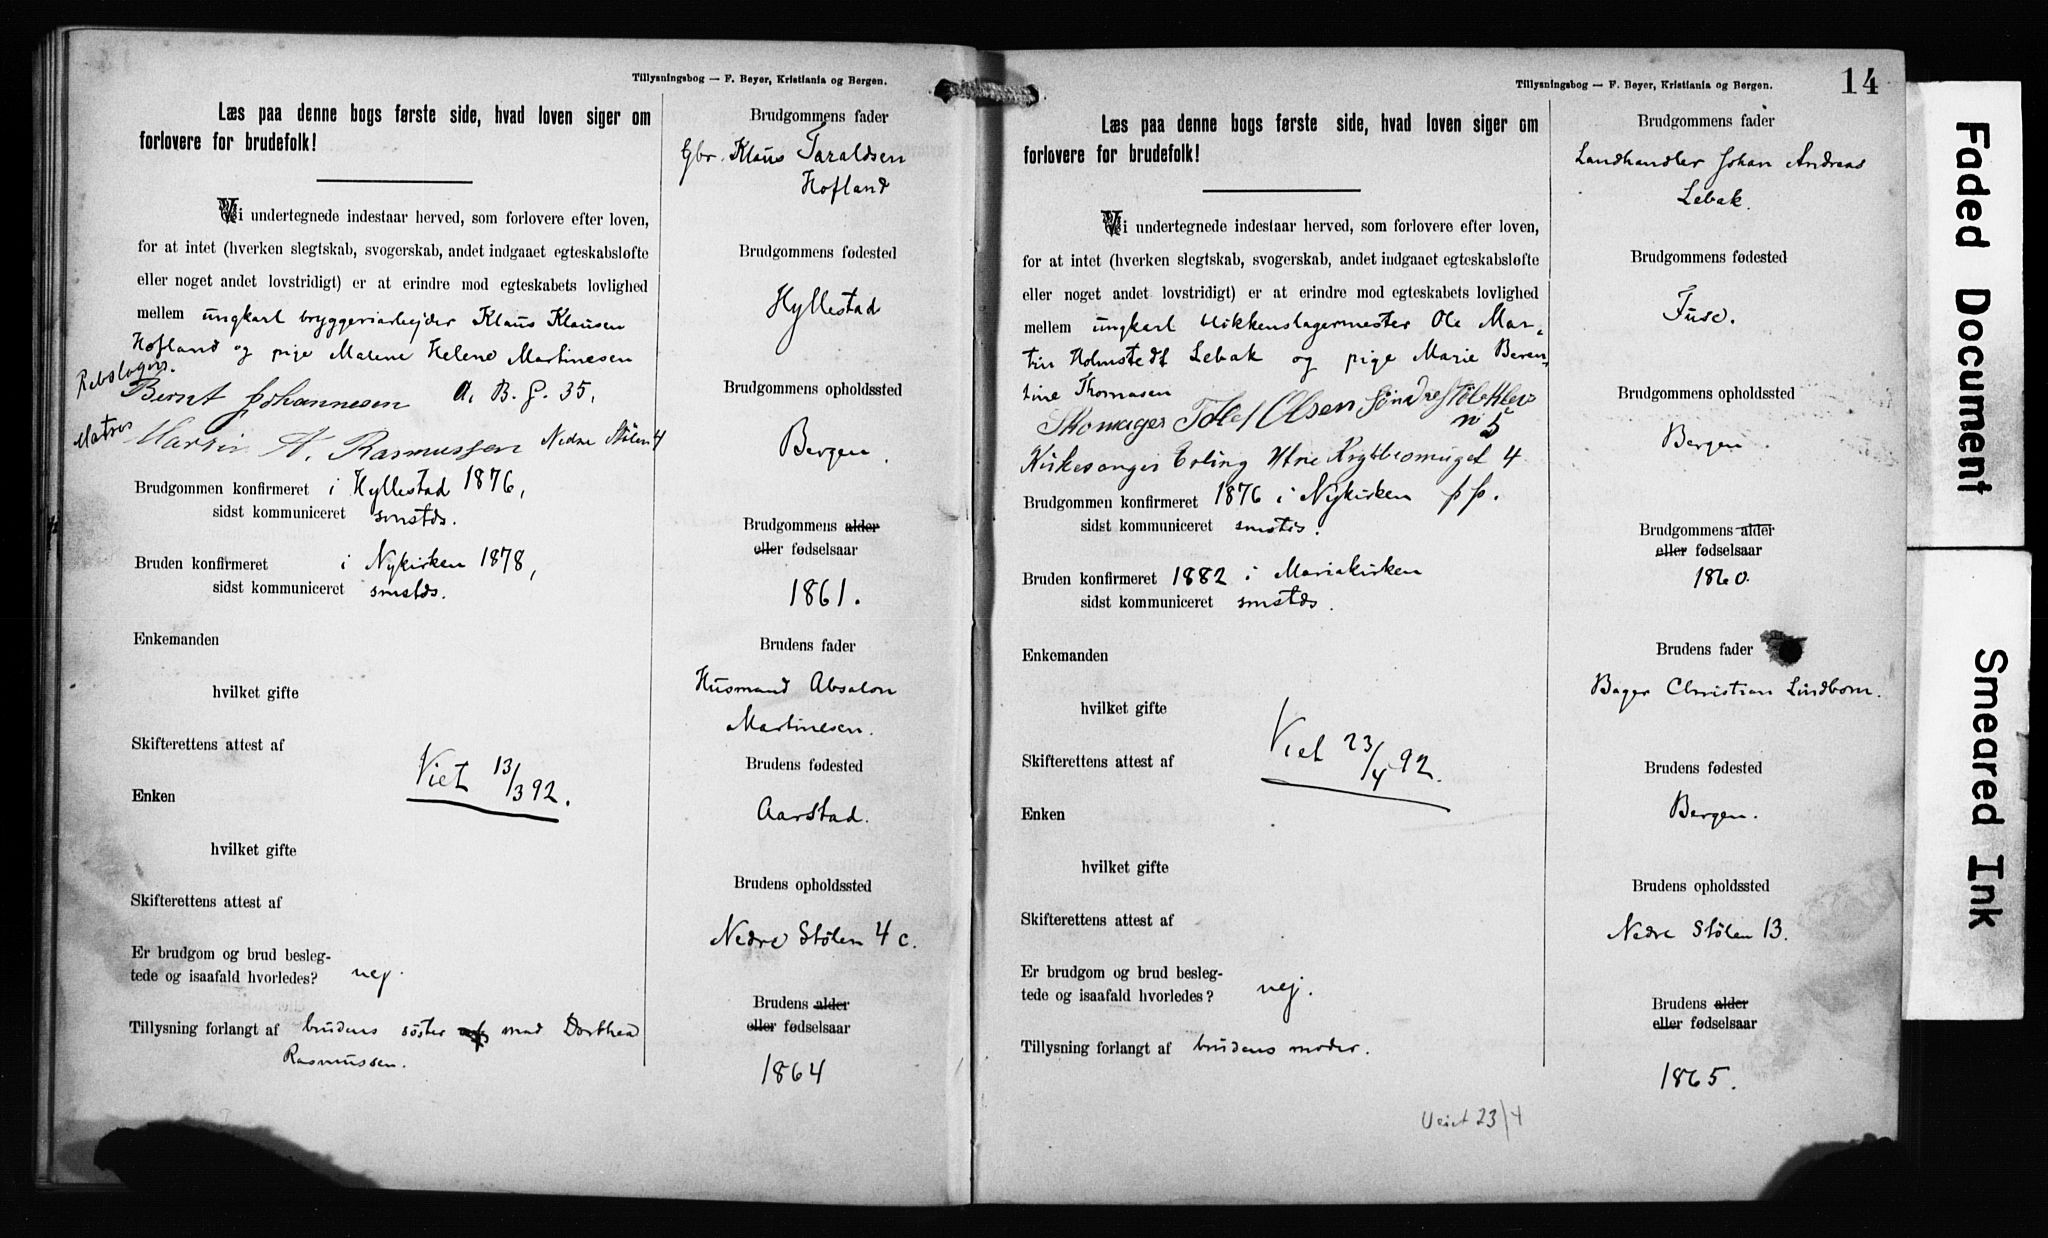 Tillysningsbog — F. Beyer, Kristiania og Bergen.
Læs paa denne bogs første side, hvad loven siger om
forlovere for brudefolk!
Vi undertegnede indestaar herved, som forlovere efter loven,
for at intet (hverken slegtskab, svogerskab, andet indgaaet egteskabsløfte
eller noget andet lovstridigt) er at erindre mod egteskabets lovlighed
mellem ungkarl bryggeriarbejder Klaus Klausen
Hofland og pige Malene Helene Martinesen
Rebslager.
Bernt Johannesen A. B. G. 35,
Matros Martin A. Rasmussen Nedre Stølen 4
Brudgommen konfirmeret i Hyllestad 1876,
sidst kommuniceret smstds.
Bruden konfirmeret i Nykirken 1878,
sidst kommuniceret smstds.
Enkemanden
hvilket gifte
Skifterettens attest af
Viet 13/3 92.
Enken
hvilket gifte
Skifterettens attest af
Er brudgom og brud besleg-
tede og isaafald hvorledes? nej.
Tillysning forlangt af brudens søster mad Dorthea
Rasmussen.
Brudgommens fader
Gbr. Klaus Taraldsen
Hofland
Brudgommens fødested
Hyllestad
Brudgommens opholdssted
Bergen.
Brudgommens alder
eller fødselsaar
1861.
Brudens fader
Husmand Absalon
Martinesen.
Brudens fødested
Aarstad.
Brudens opholdssted
Nedre Stølen 4 c.
Brudens alder
eller fødselsaar
1864
Tillysningsbog — F. Beyer, Kristiania og Bergen.
14
Læs paa denne bogs første side, hvad loven siger om
forlovere for brudefolk!
Vi undertegnede indestaar herved, som forlovere efter loven,
for at intet (hverken slegtskab, svogerskab, andet indgaaet egteskabsløfte
eller noget andet lovstridigt) er at erindre mod egteskabets lovlighed
mellem ungkarl blikkenslagermester Ole Mar-
tin Holmstedt Lebak og pige Marie Beren-
tine Thomasen
Skomager Olsen Søndre Støleklev
no 5
Kirkesanger Erling 4
Brudgommen konfirmeret 1876 i Nykirken
sidst kommuniceret smstds.
Bruden konfirmeret 1882 i Mariakirken
sidst kommuniceret smstds.
Enkemanden
hvilket gifte
Skifterettens attest af
Viet 23/4 92.
Enken
hvilket gifte
Skifterettens attest af
Er brudgom og brud besleg-
tede og isaafald hvorledes? nej.
Tillysning forlangt af brudens moder.
Brudgommens fader
Landhandler Johan Andreas
Lebak.
Brudgommens fødested
Fuse.
Brudgommens opholdssted
Bergen.
Brudgommens alder
eller fødselsaar
1860.
Brudens fader
Bager Christian Lindbom.
Brudens fødested
Bergen.
Brudens opholdssted
Nedre Stølen 13.
Brudens alder
eller fødselsaar
1865.
Viet 23/4
Faded Document
Smeared Ink